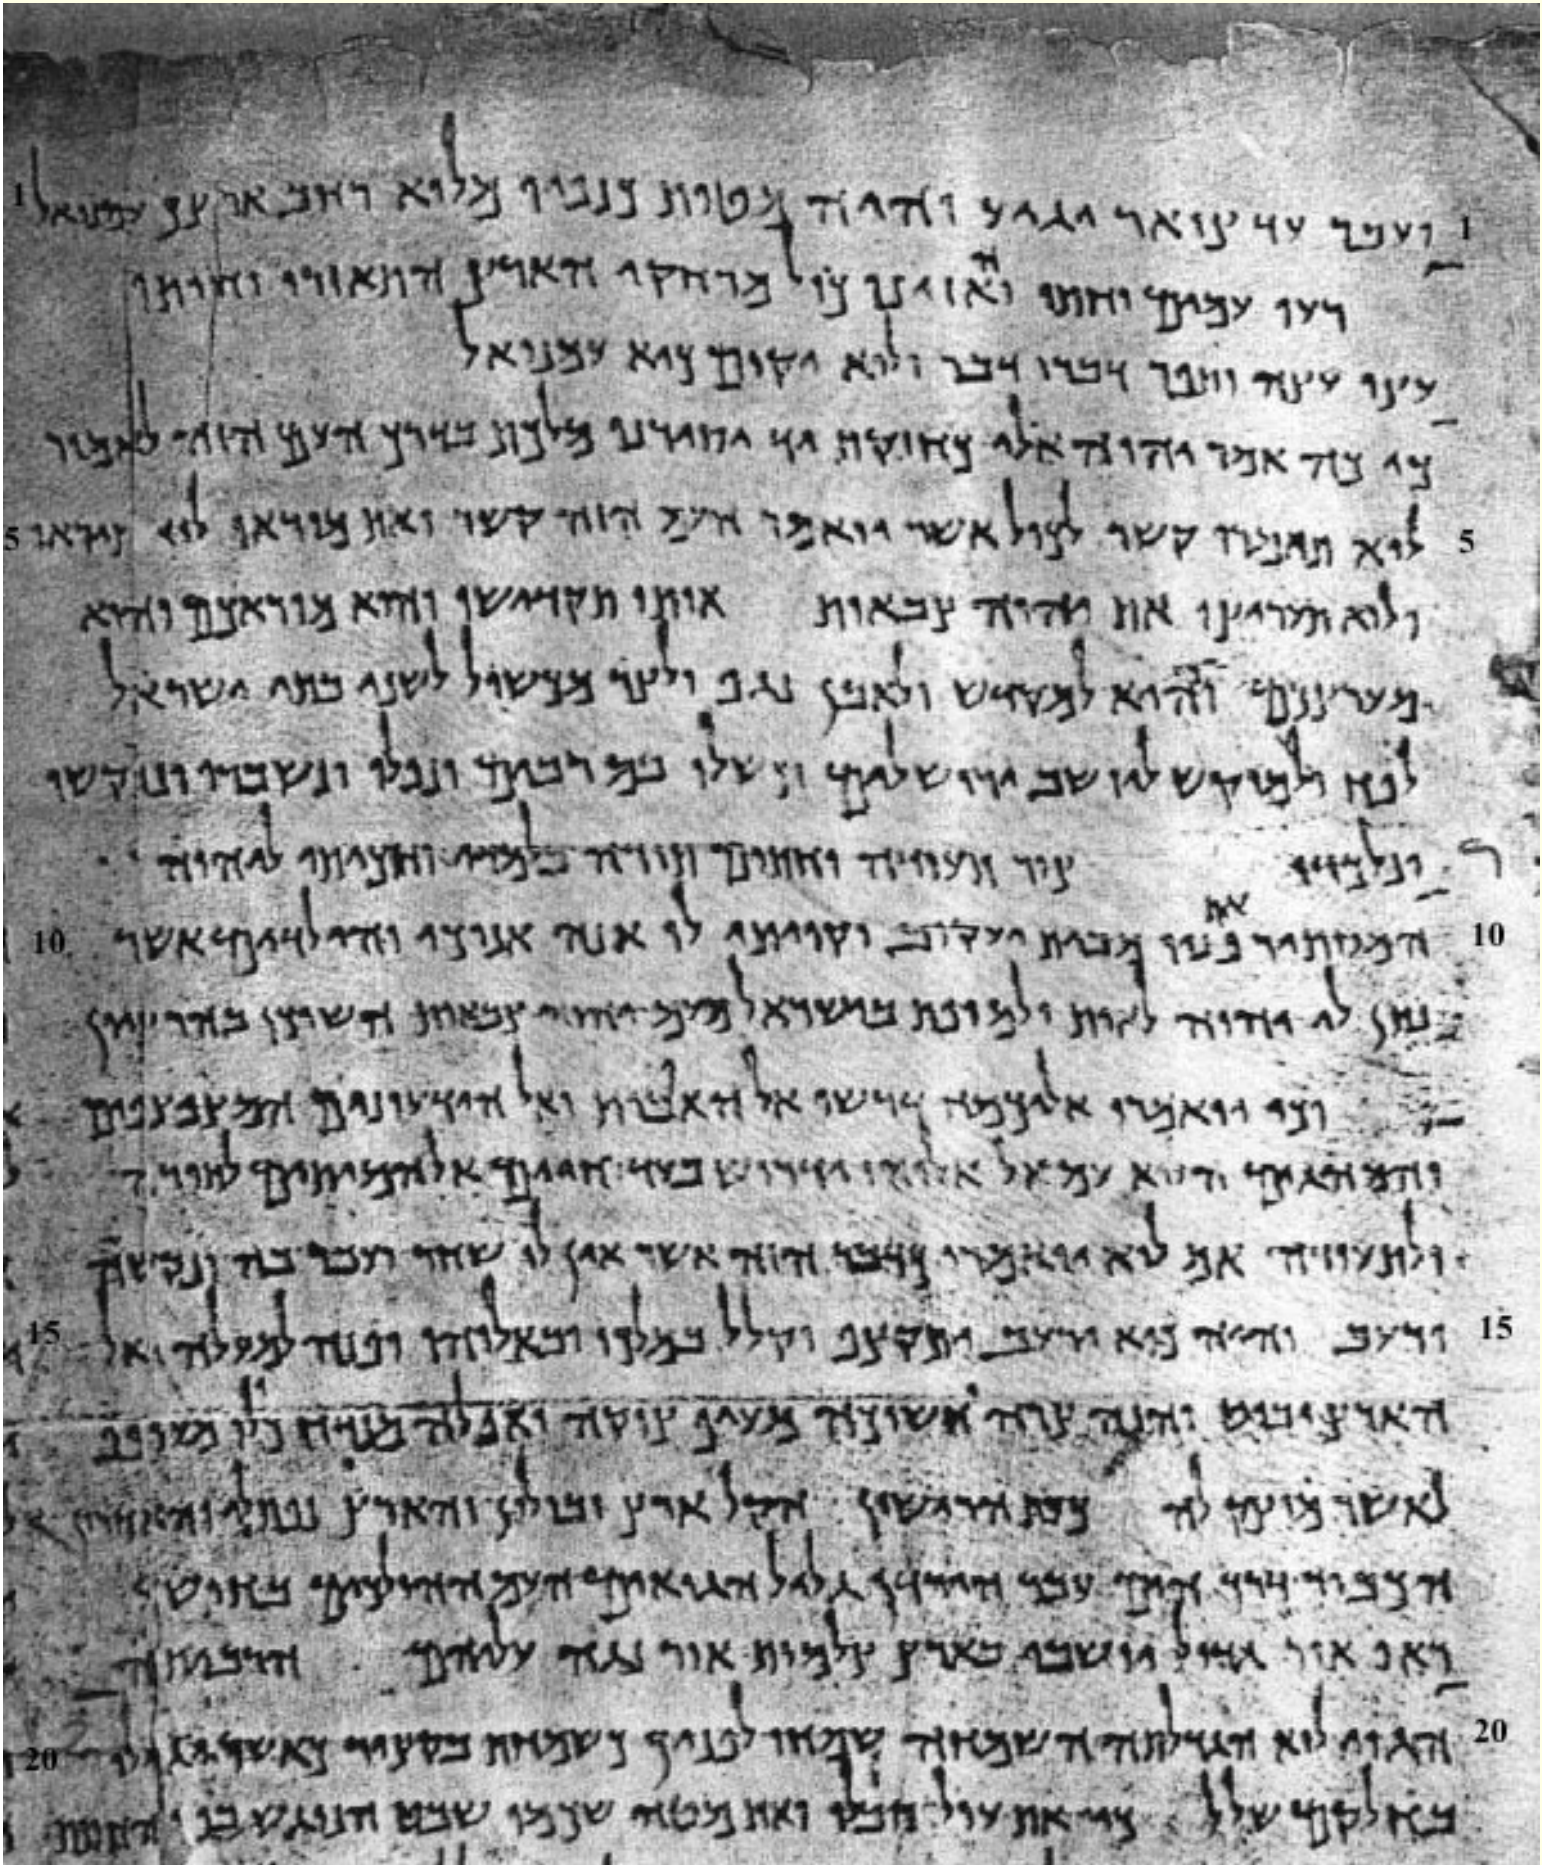 1 ועבר עד צואר יגיע והיה מטות כנפיו מלוא רחב ארצך עמנואל 1
רעו עמים וחתו והאזינו כול מרחקי הארץ התאזרו וחותו
עוצו עצה ותפר דברו דבר ולוא יקום כיא עמנואל
כי כה אמר יהוה אלי כחזקת יד יסירנו מלכת בדרך העם הזה לאמור
5 לוא תאמרו קשר לכול אשר יואמר העם הזה קשר ואת מוראו לוא תיראו 5
ולוא תעריצו את יהוה צבאות אותו תקדישו והוא מוראכם והוא
מעריצכם והיה למקדש ולאבן נגף ולצור מכשול לשני בתי ישראל
לפח ולמוקש ליושב ירושלים וכשלו בם רבים ונפלו ונשברו ונוקשו
ונלכדו צור תעודה וחתום תורה בלמדי וחכיתי ליהוה
10 המסתיר את פניו מבית יעקוב וקויתי לו הנה אנוכי והילדים אשר 10
נתן לי יהוה לאות ולמופת בישראל מעם יהוה צבאות השוכן בהר ציון
וכי יואמרו אליכמה דרשו אל האבות ואל הידעונים המצפצפים
והמהגים הלוא עם אל אלוהיו ידרוש בעד החיים אל המיתים לתורה
ולתעודה אם לוא יואמרו כדבר הזה אשר אין לו שחר ועבר בה ונקשה
15 ורעב והיה כיא ירעב יתקצף וקלל במלכו ובאלוהיו ופנה למעלה ואל 15
הארץ יביט והנה צרה מעוף צוקה ואפלה מנודח
לאשר מוצק לה כעת הראישון הקל ארץ זבולון והארץ נפתלי והאחרון
הכביד דרך הים עבר הירדן גליל הגואים העם ההולכים בחושך
ראו אור גדול יושבי בארץ צלמות אור נגה עליהם הרביתה
20 הגוי לוא הגדלתה השמחה שמחו לפניך כשמחת בקציר כאשר יגילו 20
בחלקם שלל כיא את עול סבלו ואת מטה שכמו שבט הנוגש בו